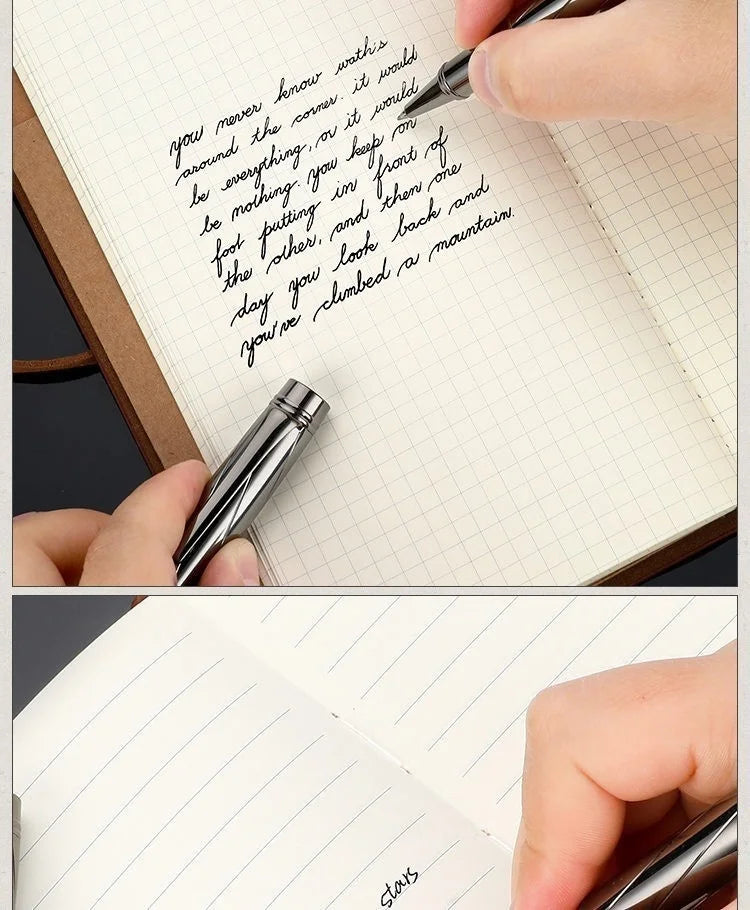 you never know wath's
around the corner. it would
be everything, or it would
be nothing. you keep on
foot putting in front of
the other, and then one
day you look back and
you've climbed a mountain.
stars